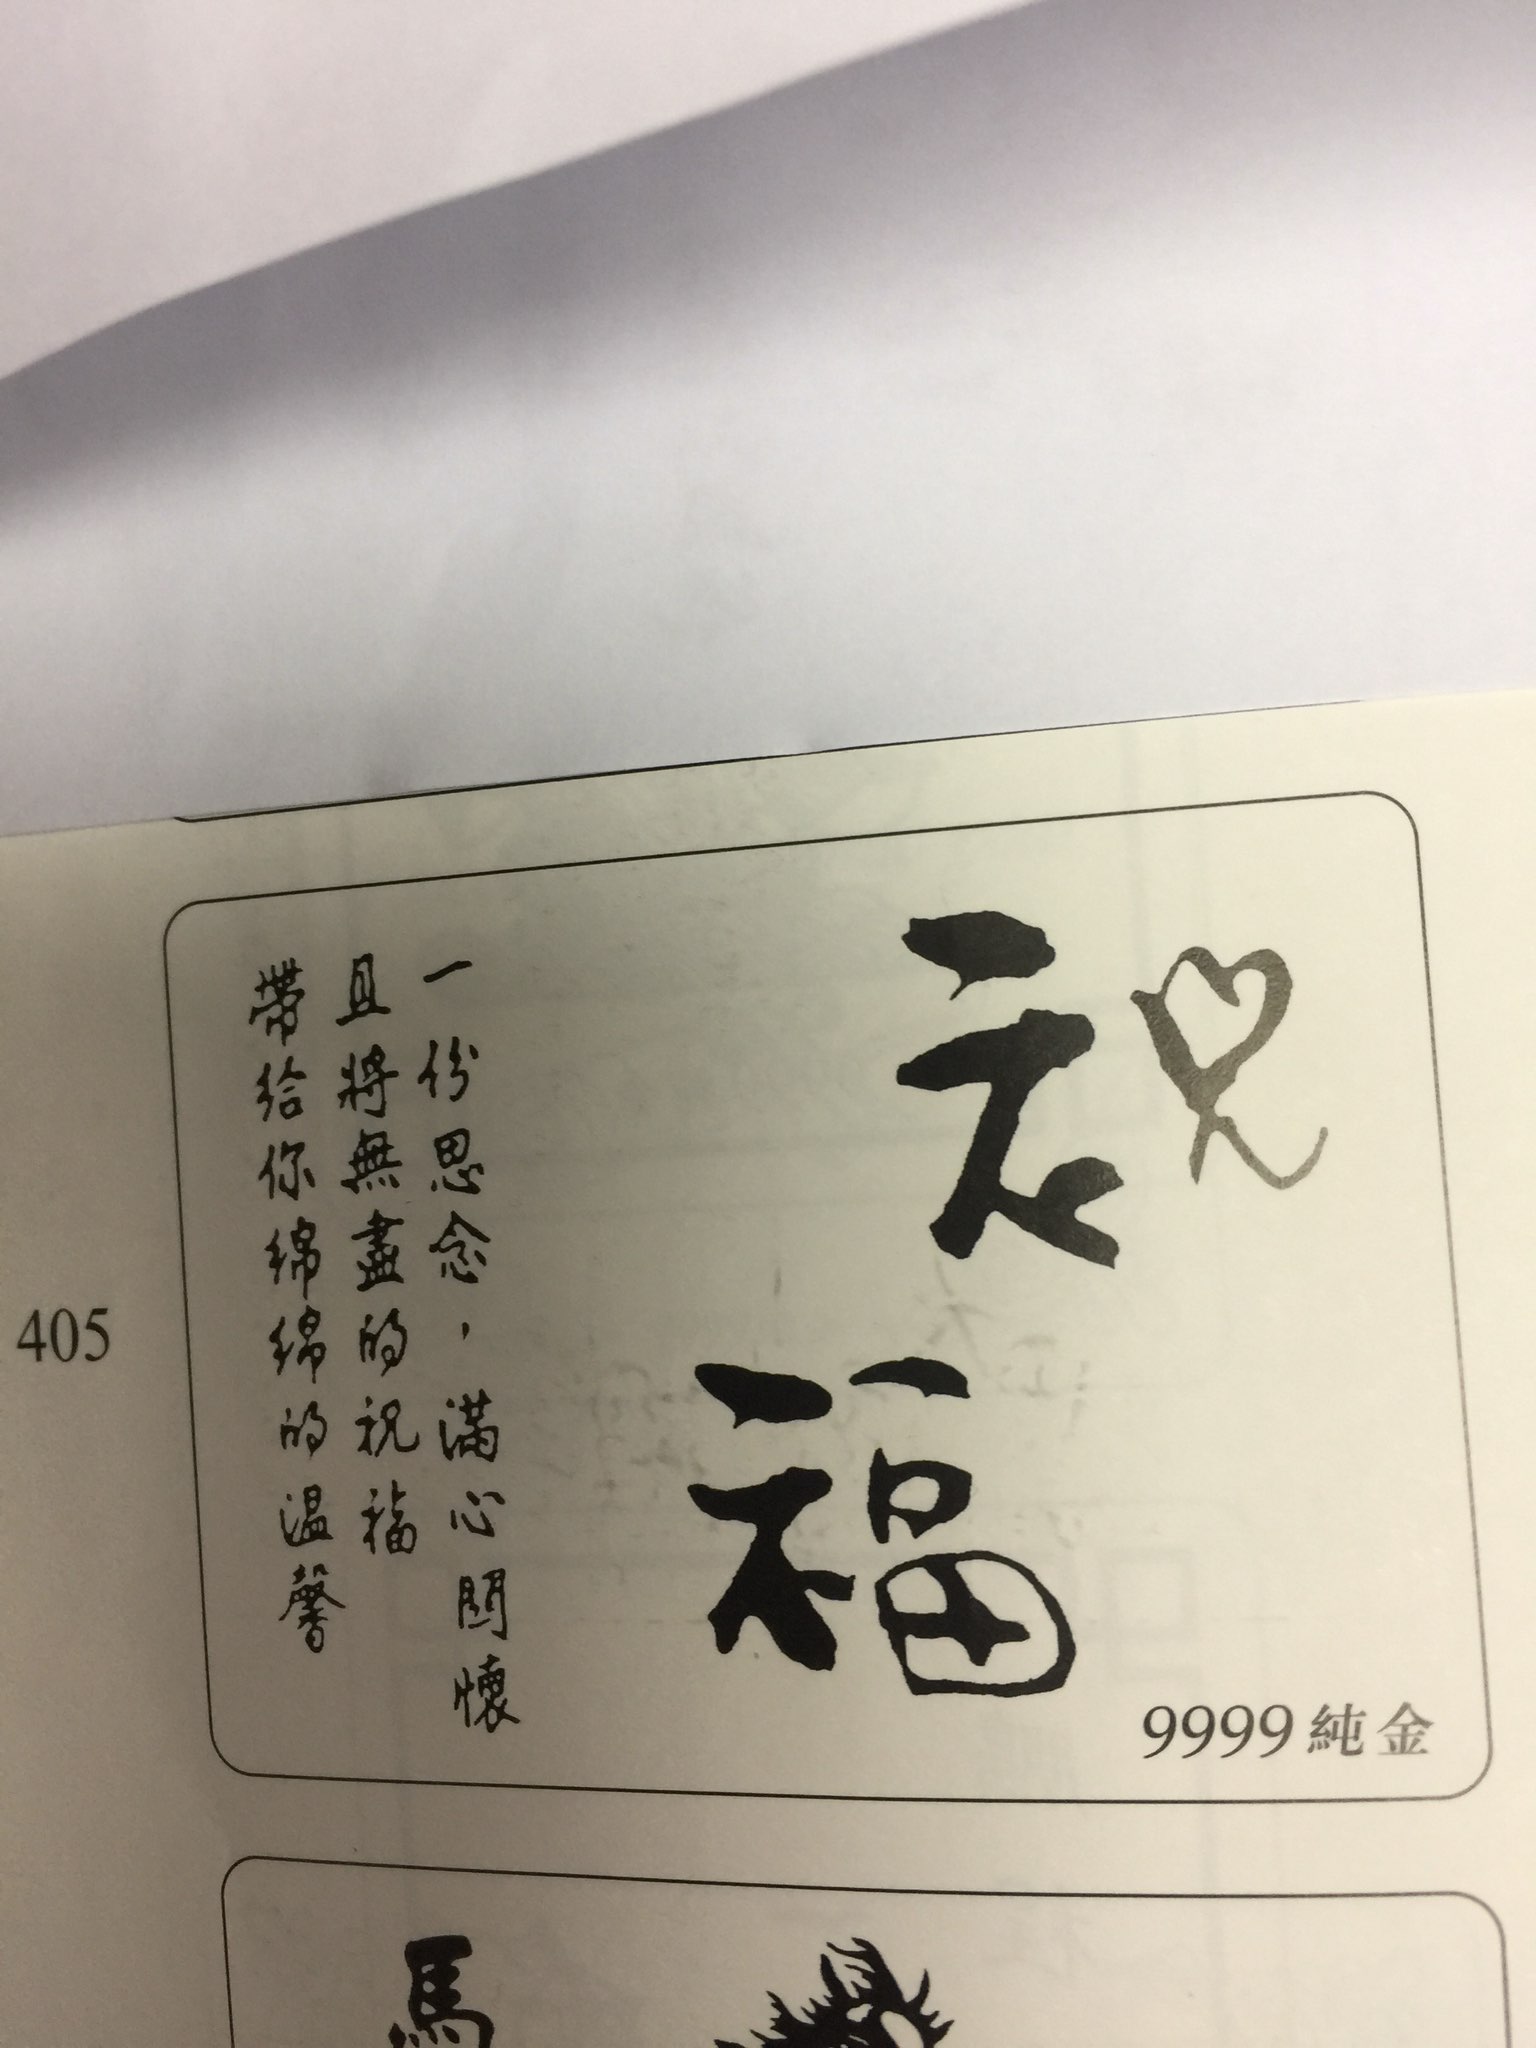 祝福
一份思念，滿心關懷
且將無盡的祝福
帶給你綿綿的溫馨
9999純金
405
馬